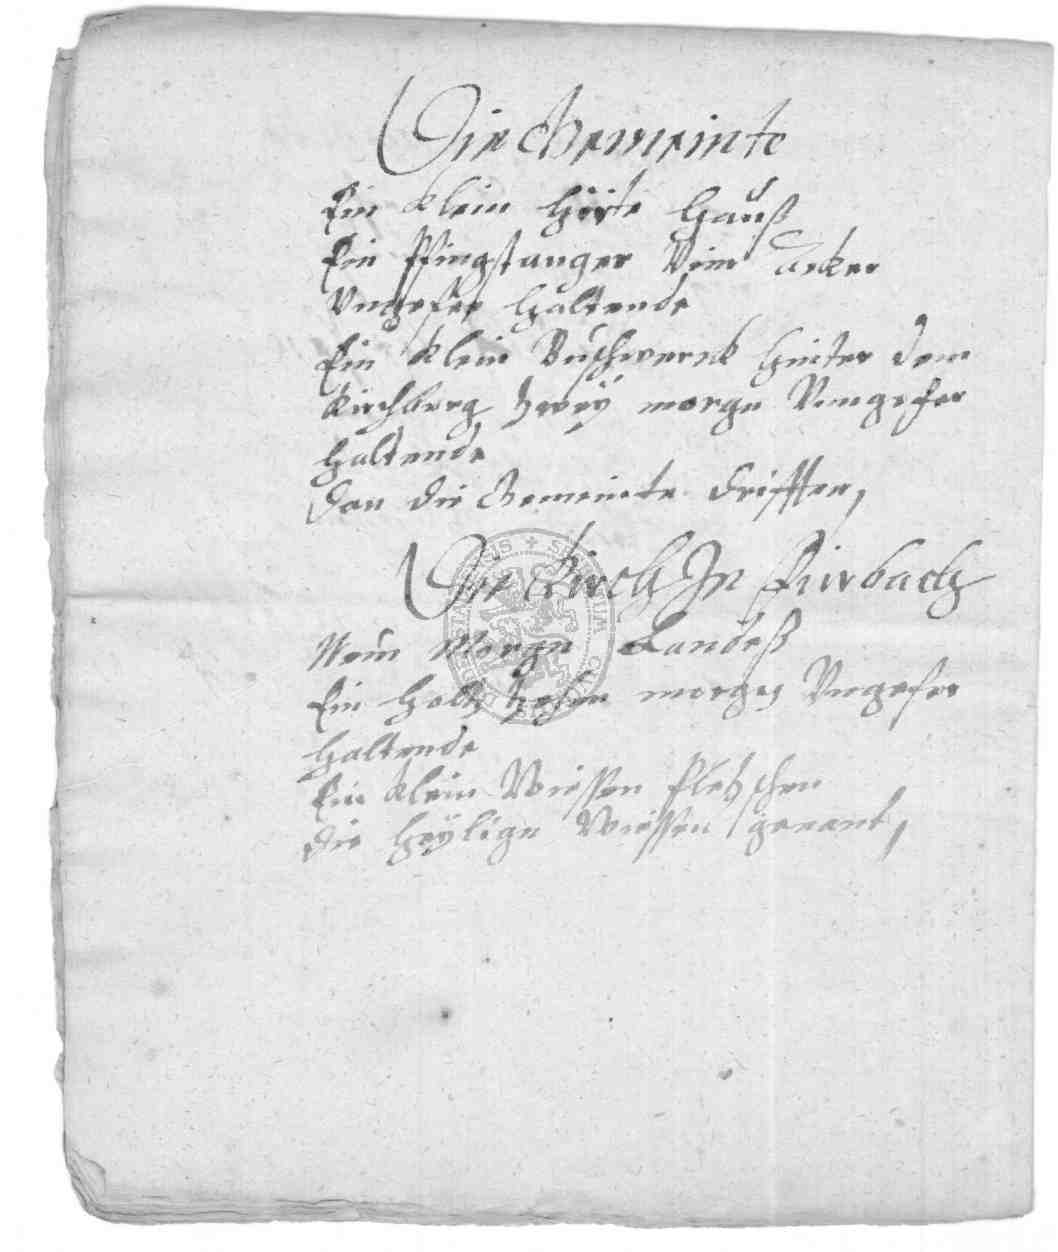 Die Gemeinte
Ein klein Hirte Hauß
Ein Pfingstanger Vier Acker
Vngefer haltende
Ein klein Buschwerck hinter dem
Kirchberg zweÿ morgn Vngefer
haltende
Dan die Gemeinte Drifften,
Die Kirch In Fierbach
Neun Morgn Landeß
Ein holtz zehen morgn Vngefer
haltende
Ein klein Wiessen Fletzschen
die Heÿlign Wiessen genant,